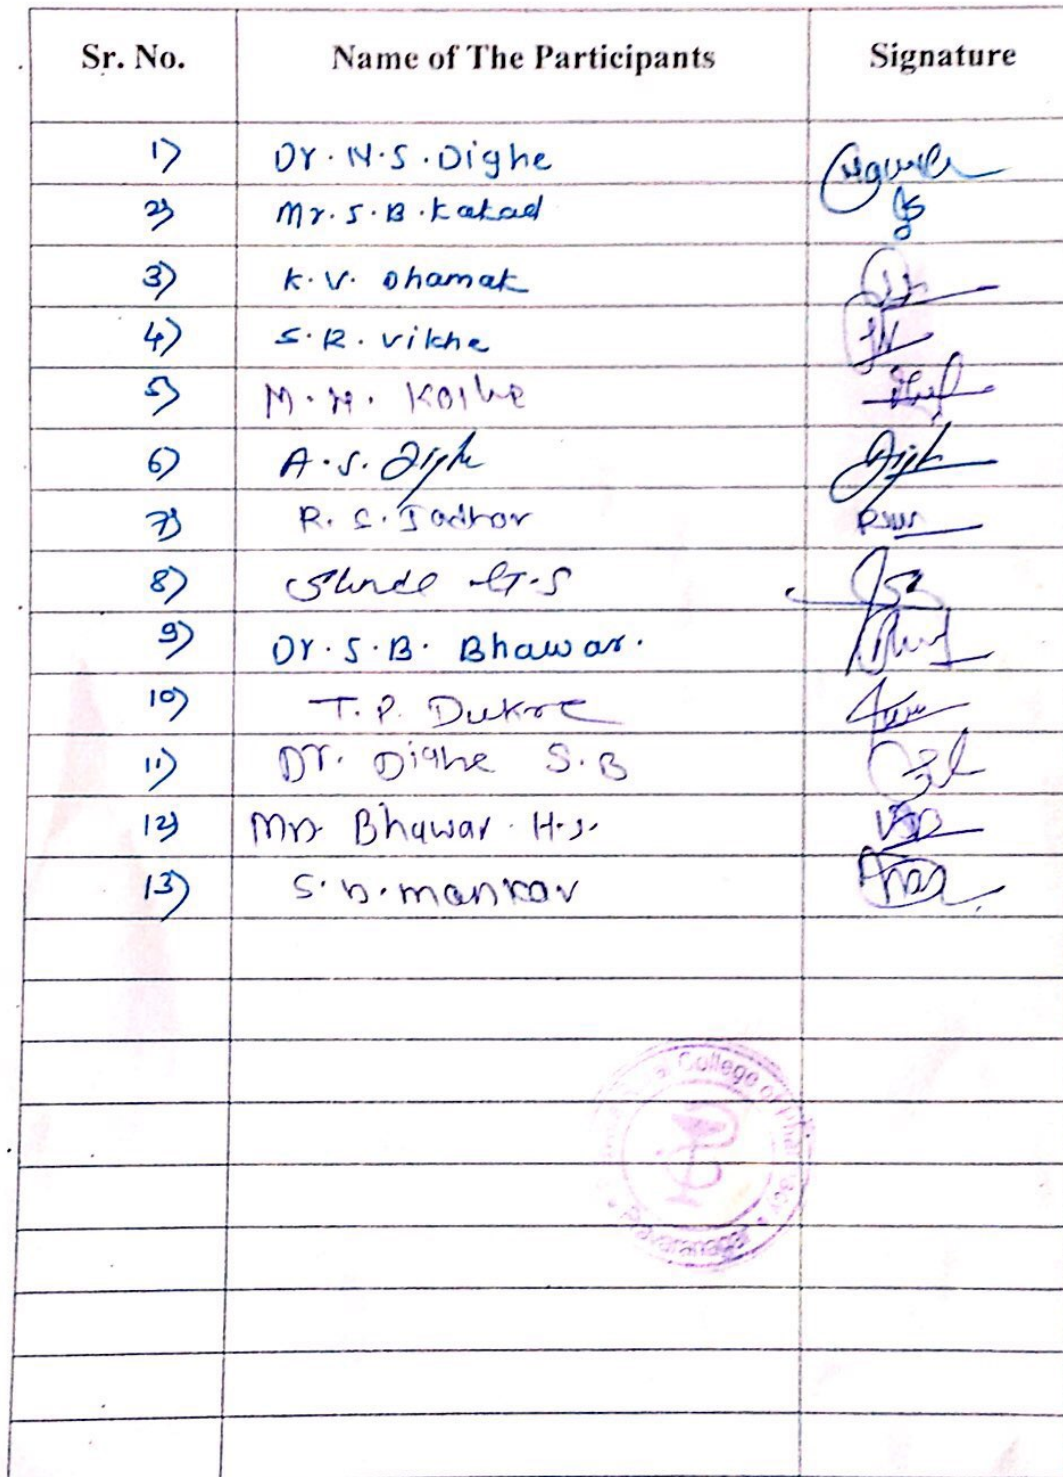 Sr. No. Name of The Participants Signature
1) Dr. N.S. Dighe
2) Mr. S.B. Kakad
3) K.V. Dhamak
4) S.R. Vikhe
5) M.H. Kolhe
6) A.S. Dighe
7) R.S. Jadhav
8) Shinde G.S
9) Dr. S.B. Bhawar.
10) T.P. Dukre
11) Dr. Dighe S.B
12) Mrs Bhawar H.S.
13) S.D. Mankar
College of
Pravaranagar